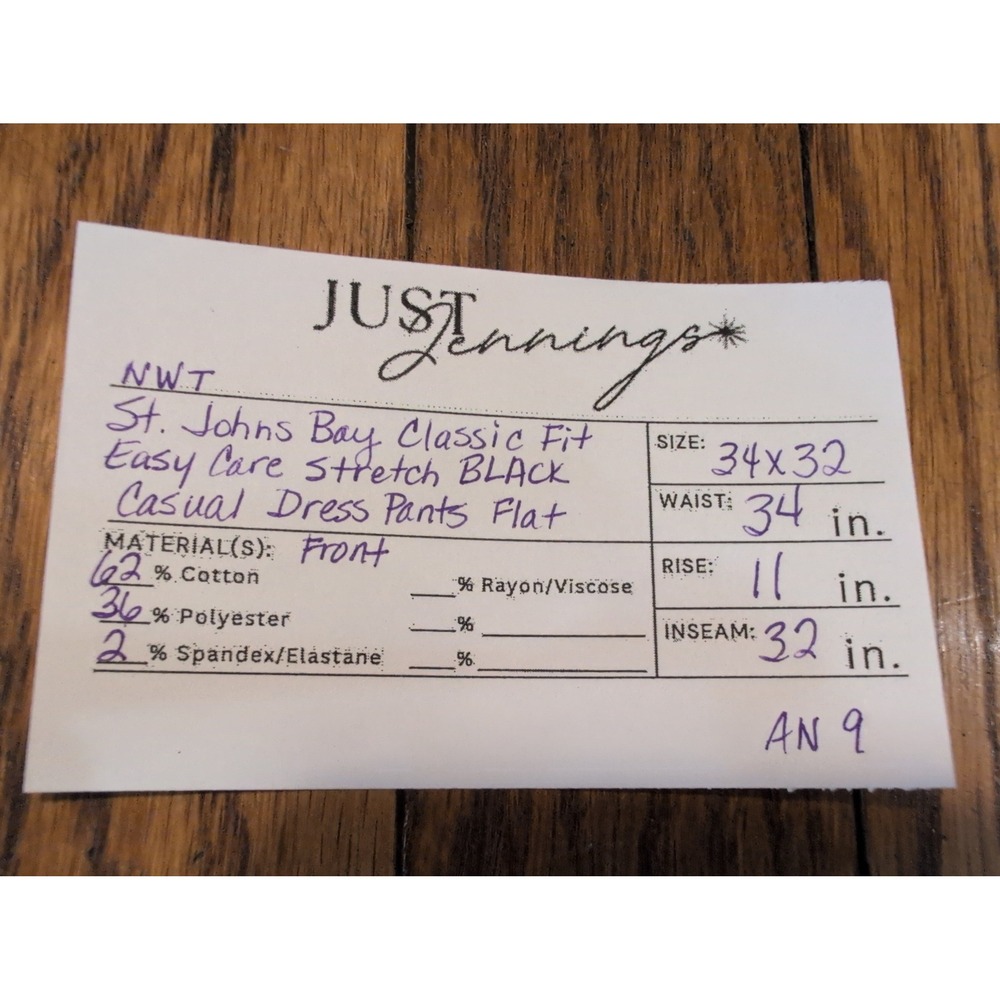 JUST Jennings
NWT
St. Johns Bay Classic Fit
Easy Care Stretch BLACK
Casual Dress Pants Flat
Front
MATERIAL(S):
62 % Cotton
36 % Polyester
2 % Spandex/Elastane
% Rayon/Viscose
%
%
SIZE: 34x32
WAIST: 34 in.
RISE: 11 in.
INSEAM: 32 in.
AN 9